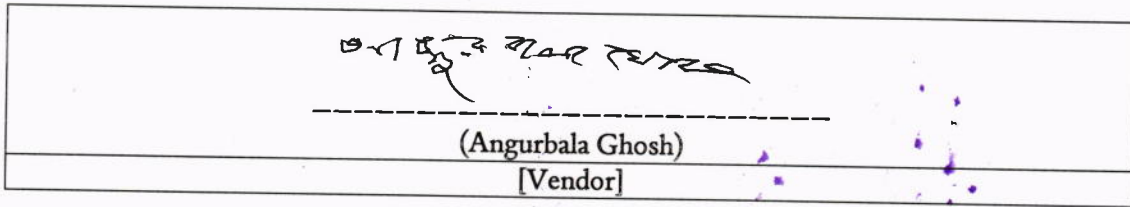 আঙ্গুরবালা ঘোষ
(Angurbala Ghosh)
[Vendor]